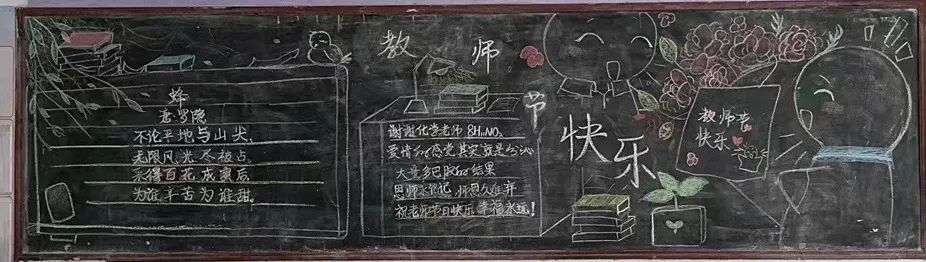 蜂
唐 罗隐
不论平地与山尖,
无限风光尽被占,
采得百花成蜜后
为谁辛苦为谁甜。
教师节
快乐
谢谢化学老师
爱情の感觉其实就是分泌
大量多巴胺の结果
恩师永铭记,师恩久难弃
祝老师节日快乐 幸福永远!
教师节
快乐